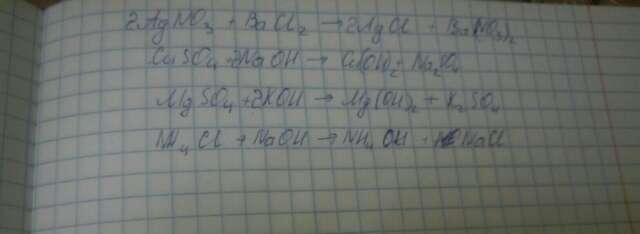 2AgNO₃ + BaCl₂ → 2AgCl + Ba(NO₃)₂
CuSO₄ + 2NaOH → Cu(OH)₂ + Na₂SO₄
MgSO₄ + 2KOH → Mg(OH)₂ + K₂SO₄
NH₄Cl + NaOH → NH₄OH + NaCl